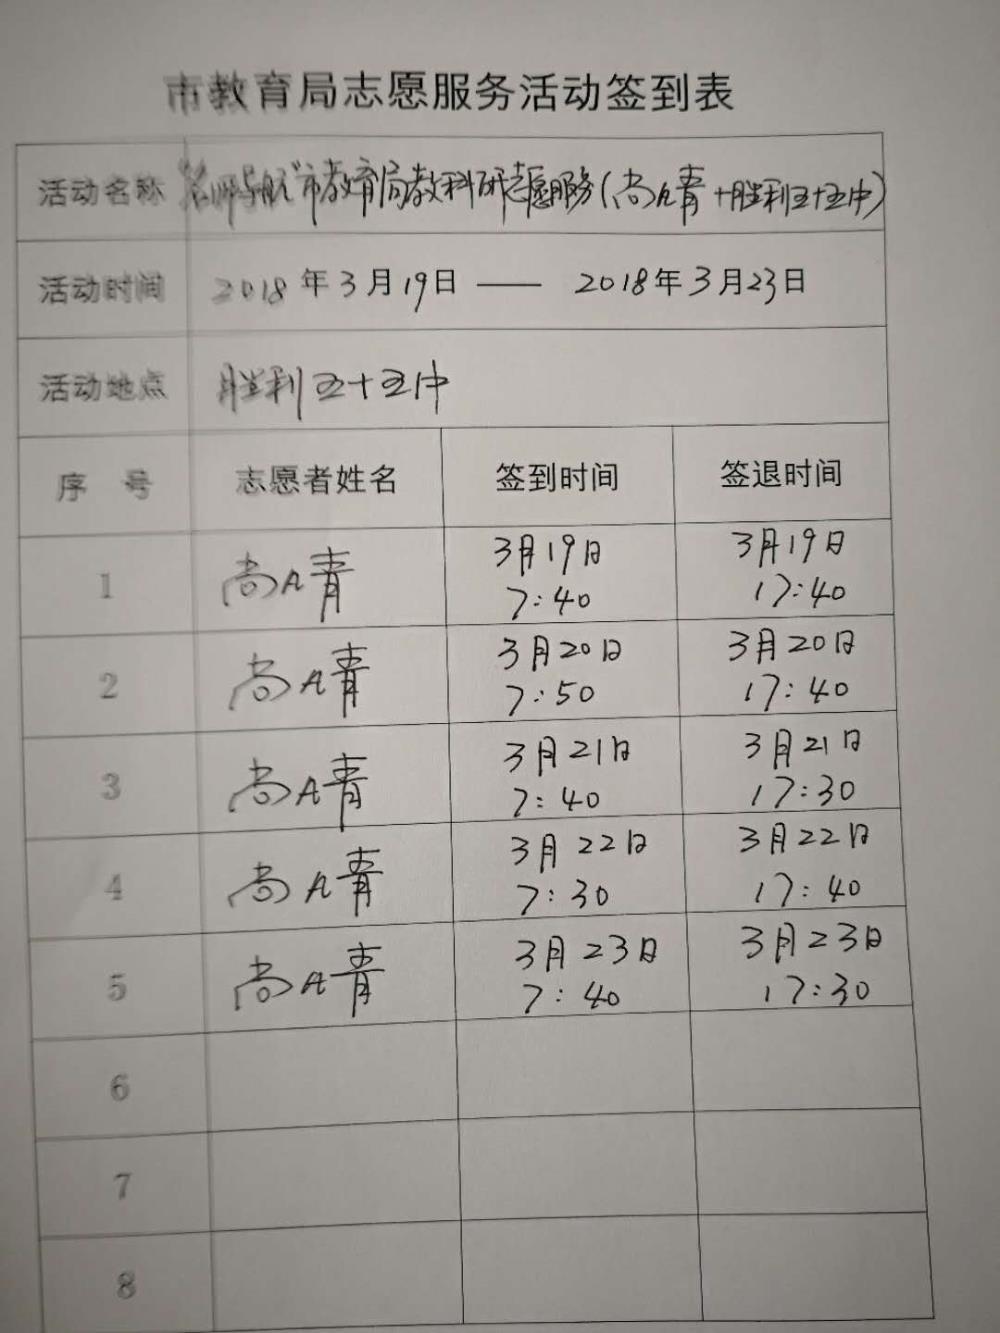 市教育局志愿服务活动签到表
活动名称 "名师导航"市教育局教科研志愿服务(尚青+胜利五十五中)
活动时间 2018年3月19日 —— 2018年3月23日
活动地点 胜利五十五中
序 号 志愿者姓名 签到时间 签退时间
1 尚青 3月19日 7:40 3月19日 17:40
2 尚青 3月20日 7:50 3月20日 17:40
3 尚青 3月21日 7:40 3月21日 17:30
4 尚青 3月22日 7:30 3月22日 17:40
5 尚青 3月23日 7:40 3月23日 17:30
6
7
8